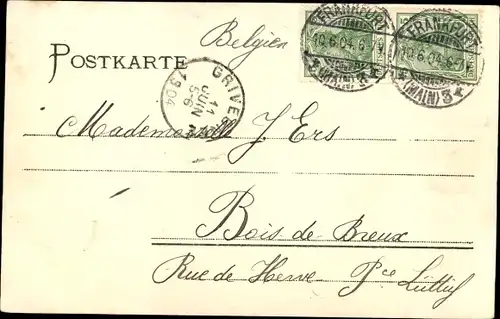 Belgien
POSTKARTE
FRANKFURT
10.6.04.6-7
*(MAIN) 3
FRANKFURT
10.6.04.6-7
*(MAIN) 3
GRIVEGNÉE
11
JUIN
5-6
1904
Mademoiselle J. Ers
Bois de Breux
Rue de Herve Pce Lüttich